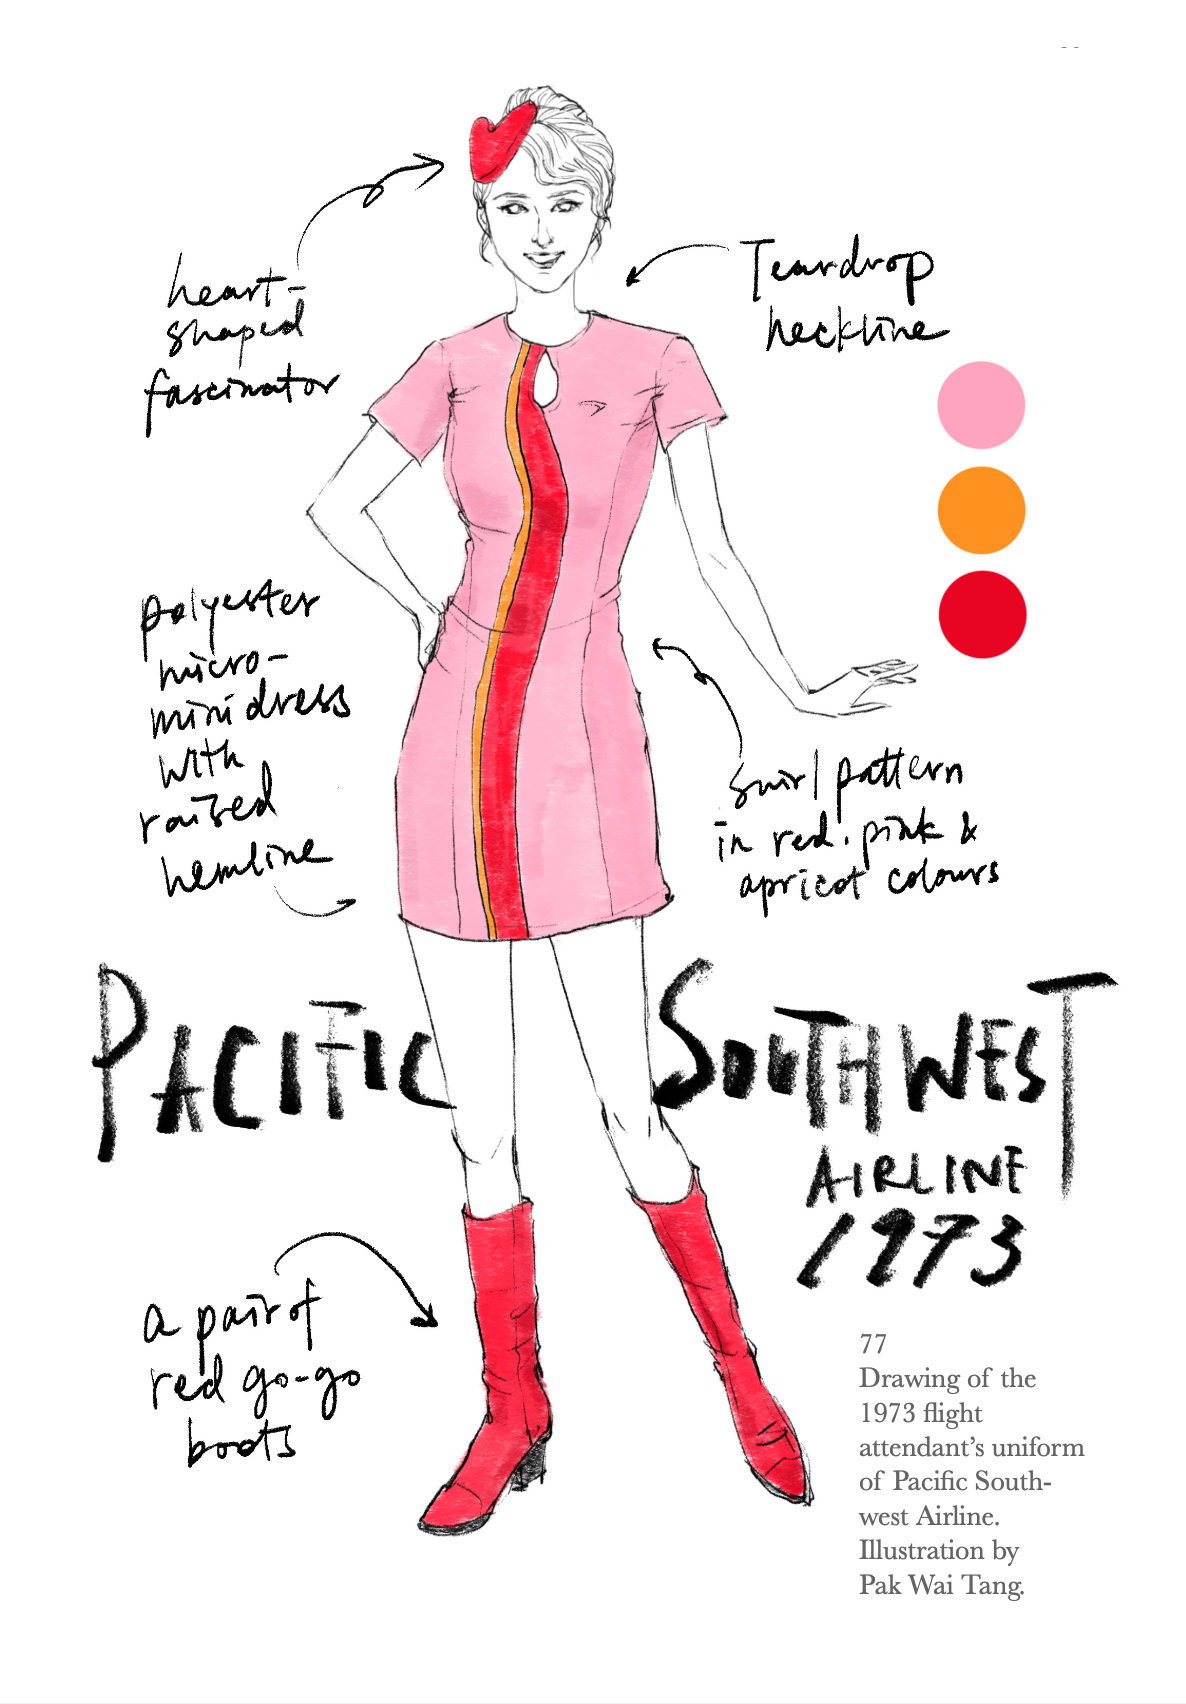 heart-
shaped
fascinator
Teardrop
neckline
polyester
micro-
mini dress
with
raised
hemline
swirl pattern
in red, pink &
apricot colours
PACIFIC SOUTHWEST
AIRLINE
1973
a pair of
red go-go
boots
77
Drawing of the
1973 flight
attendant's uniform
of Pacific South-
west Airline.
Illustration by
Pak Wai Tang.